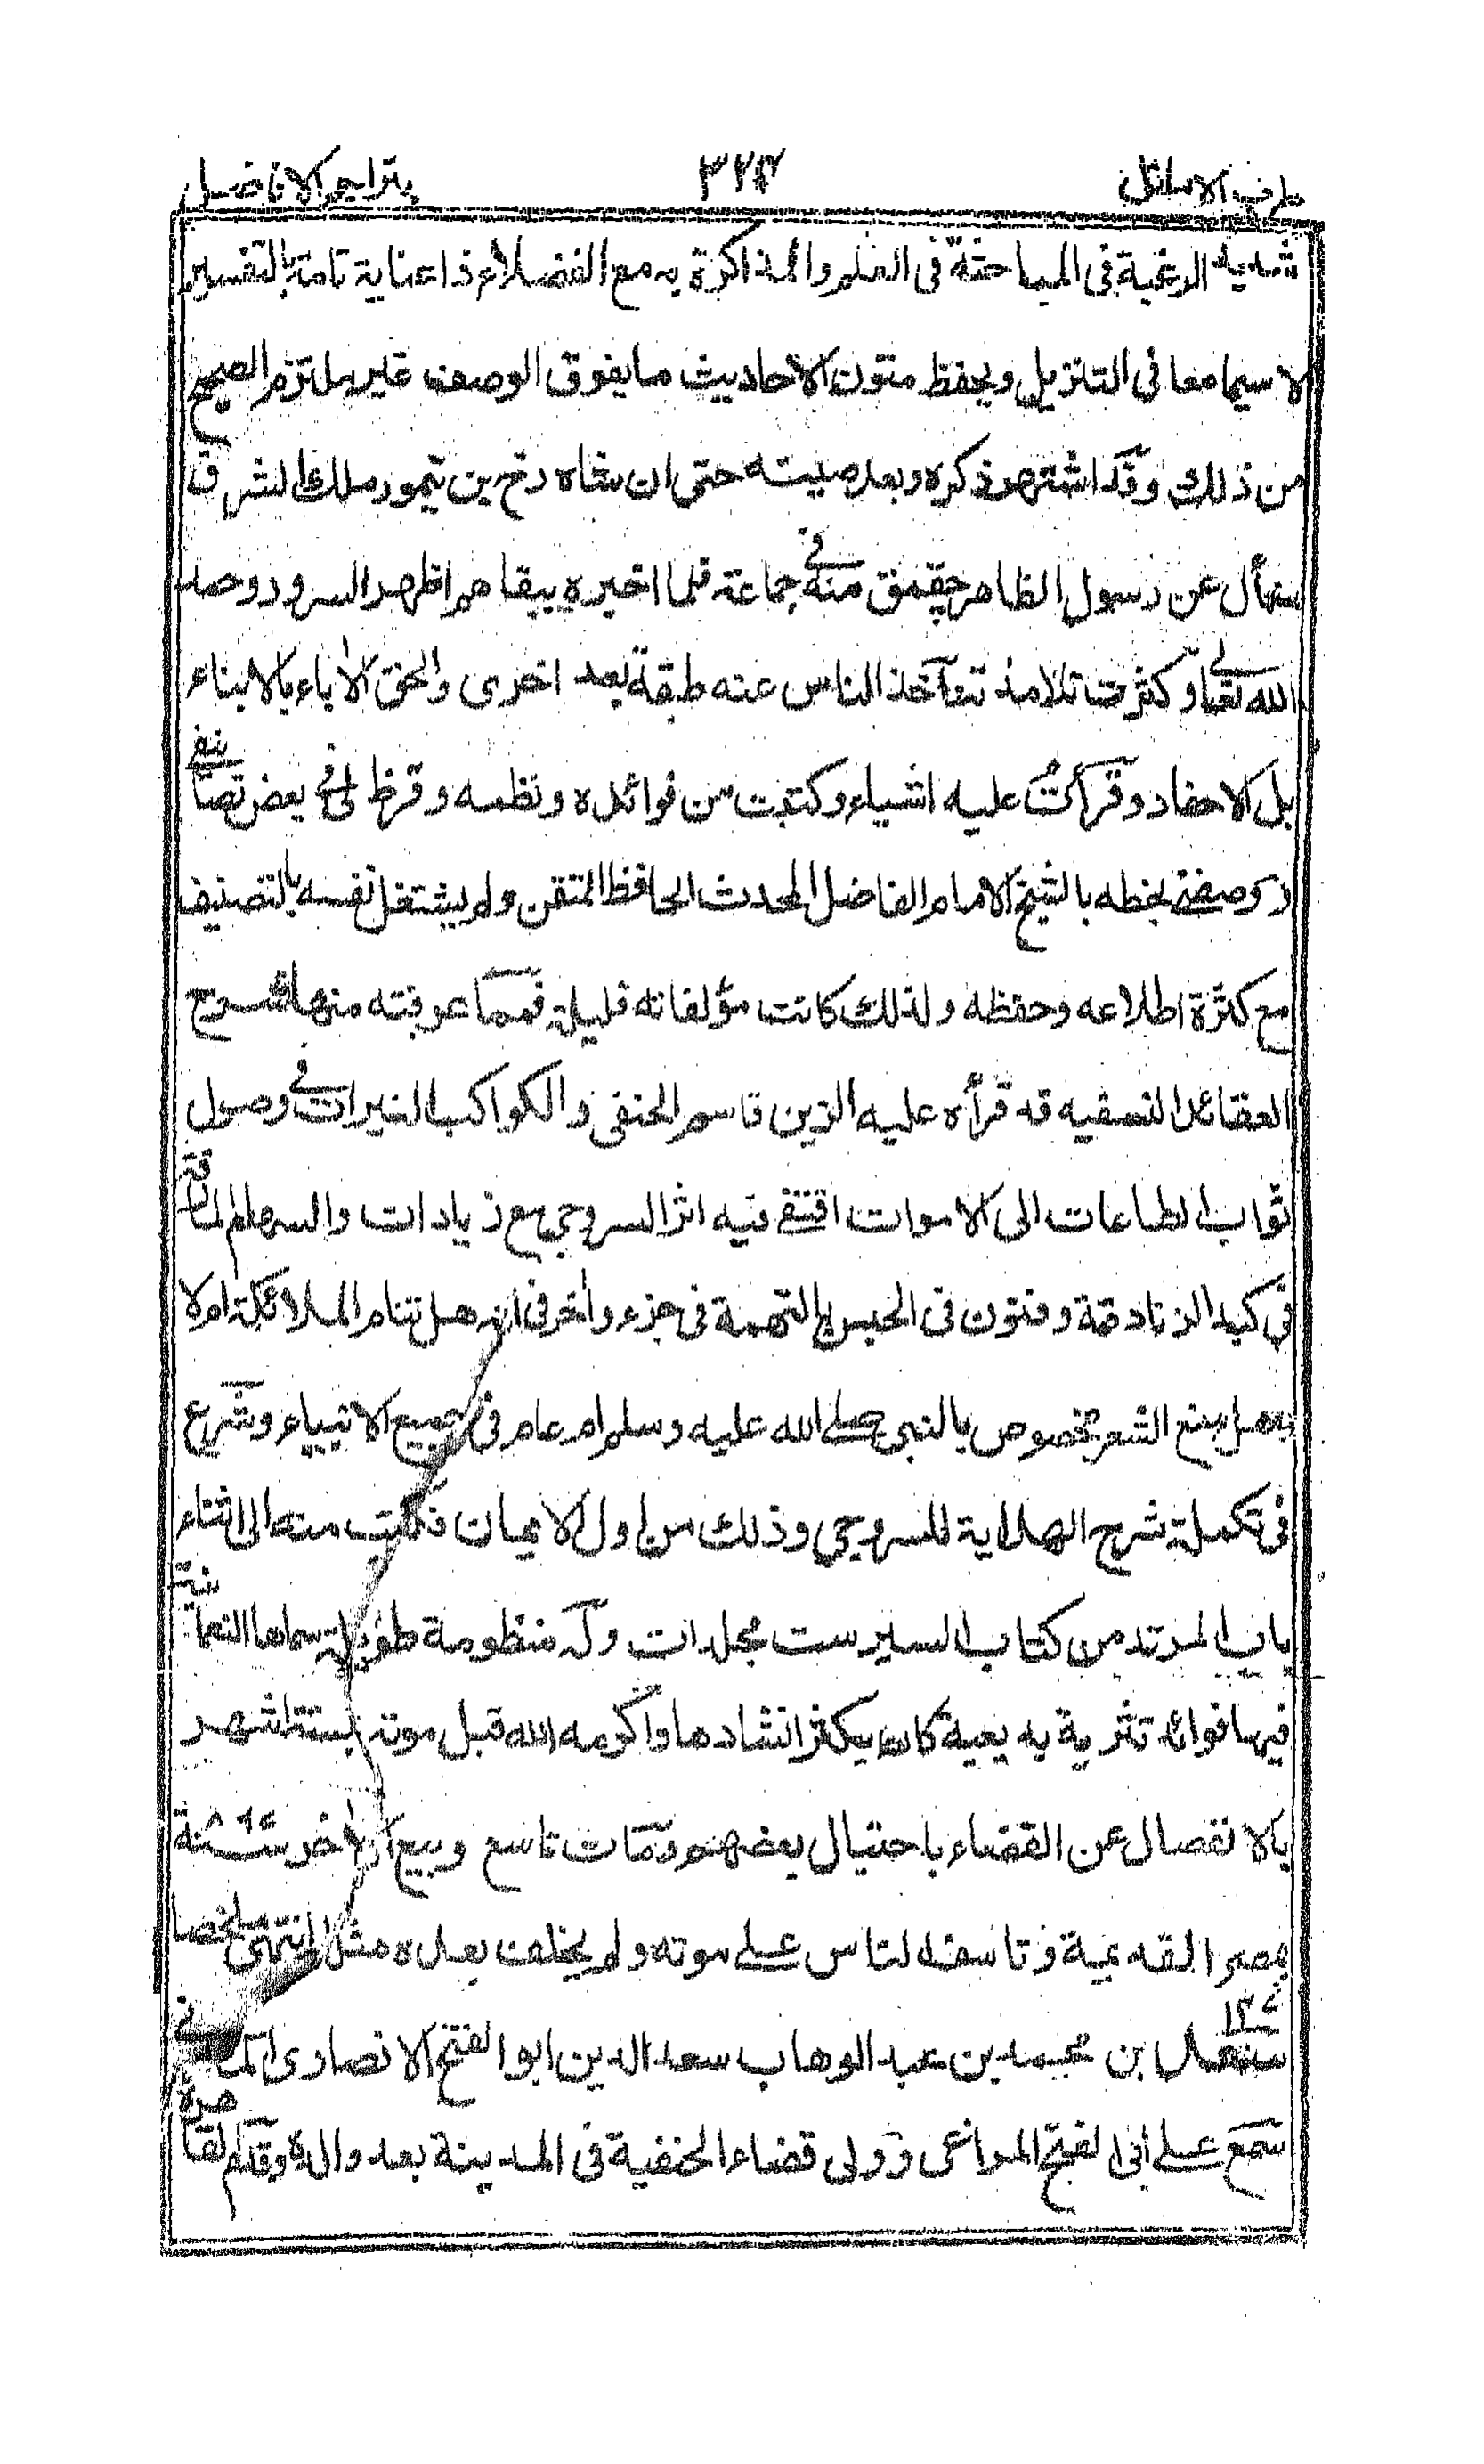 طرب الاماثل ٣٢٣ بتراجم الافاضل
شديد الرغبة فى المباحثة فى العلم والمذاكرة به مع الفضلاء ذا عناية تامة بالتفسير
لا سيما معانى التنزيل ويحفظ متون الاحاديث ما يفوق الوصف غير ملتزم الصحيح
من ذلك وقد اشتهر ذكره وبعد صيته حتى ان شاه رخ بن تيمور ملك الشرق
سأل عن رسول الظاهر جقمق منه فى جماعة فلما اخبره ببقاهم اظهر السرور وحمد
الله تعالى وكثرت تلامذته وآخذ الناس عنه طبقة بعد اخرى والحق الاباء بالابناء
بل الاحفاد وقرأت عليه اشياء وكتبت من فوائده ونظمه وقرظ لى فى بعض تصانيفى
ووصفنى بخطه بالشيخ الامام الفاضل المحدث الحافظ المتقن ولم يشتغل نفسه بالتصنيف
مع كثرة اطلاعه وحفظه ولذلك كانت مؤلفاته قليلة فمما عرفته منها شرح
العقائد النسفيه قد قرأه عليه الزين قاسم الحنفى والكواكب النيرات فى وصول
ثواب الطاعات الى الاموات اقتفى فيه اثر السروجى مع زيادات والسهام المارقة
فى كبد الزنادقة وفتوى فى الحبس بالتهمة فى جزء وأخر فى انه هل تنام الملائكة ام لا
وهل منع الشعر مخصوص بالنبى صلى الله عليه وسلم ام عام فى جميع الانبياء وشرع
فى تكملة شرح الهداية للسروجى وذلك من اول الايمان فكتب منه الى اثناء
باب المرتد من كتاب السير ست مجلدات وله منظومة طويلة سماها النعمانية
فيها فوائد نثرية به يعية كان يكثر انشادها واكرمه الله قبل موته بستة اشهر
بالانفصال عن القضاء باحتيال بعضهم ومات تاسع ربيع الاخر سنة ٨٦٧
بمصر القديمة وتاسف الناس على موته ولم يخلف بعده مثله انتهى ملخصا
سعد بن محمد بن عبد الوهاب سعد الدين ابو الفتح الانصارى المدنى
سمع على أبى الفتح المراغى وولى قضاء الحنفية فى المدينة بعد والده وقدم القاهرة